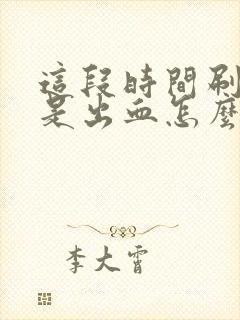 這段時間刷
是出血怎麼
李大霄